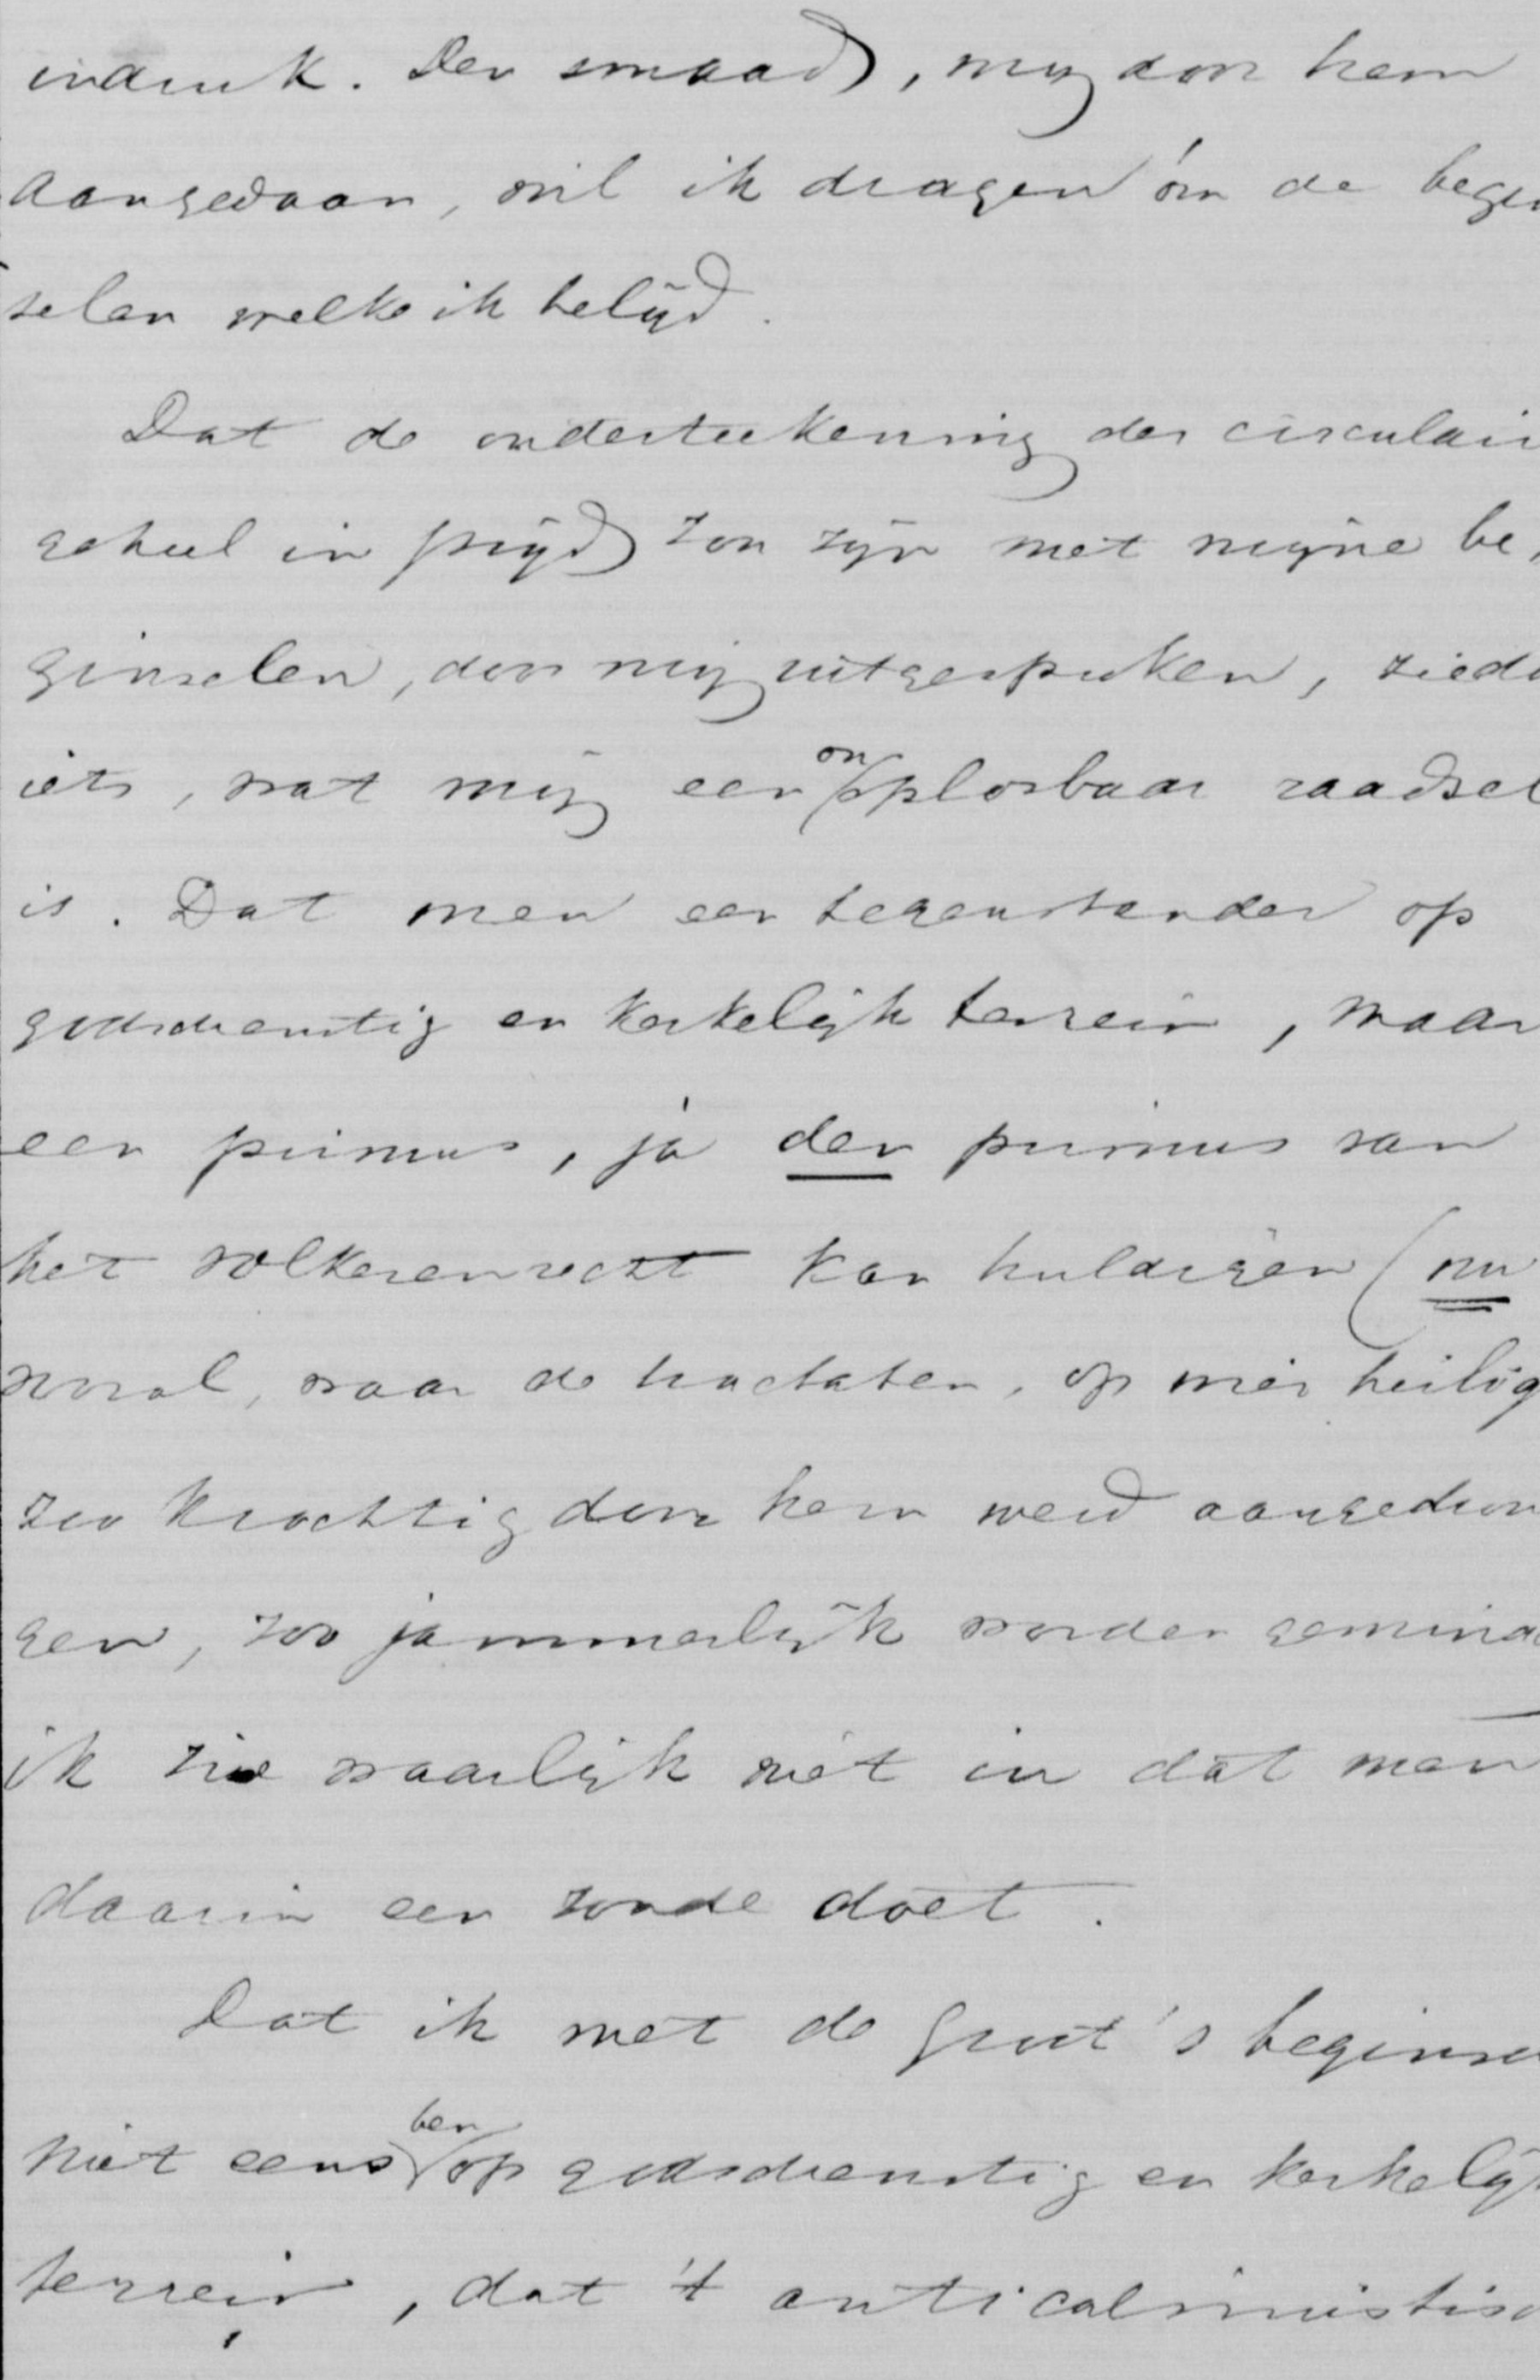 indruk. Den smaad, mij door hem
aangedaan, wil ik dragen óm de begin
selen welke ik belijd.
Dat de onderteekening der circulair
geheel in strijd zou zijn met mijne be-
ginselen, door mij uitgesproken, zieda
iets, wat mij een onoplosbaar raadsel
is. Dat men een tegenstander op
godsdienstig en kerkelijk terrein, maar
een primus, ja den primus van
het volkerenrecht kan huldigen (nu
vooral, waar de tractaten, op wier heilig
zoo krachtig door hem werd aangedron
gen, zoo jammerlijk worden geminac
ik zie waarlijk niet in dat men
daarin een zonde doet.
Dat ik met de Groot's beginse
niet eens ben op godsdienstig en kerkelijk
terrein, dat 't anticalvinistisc